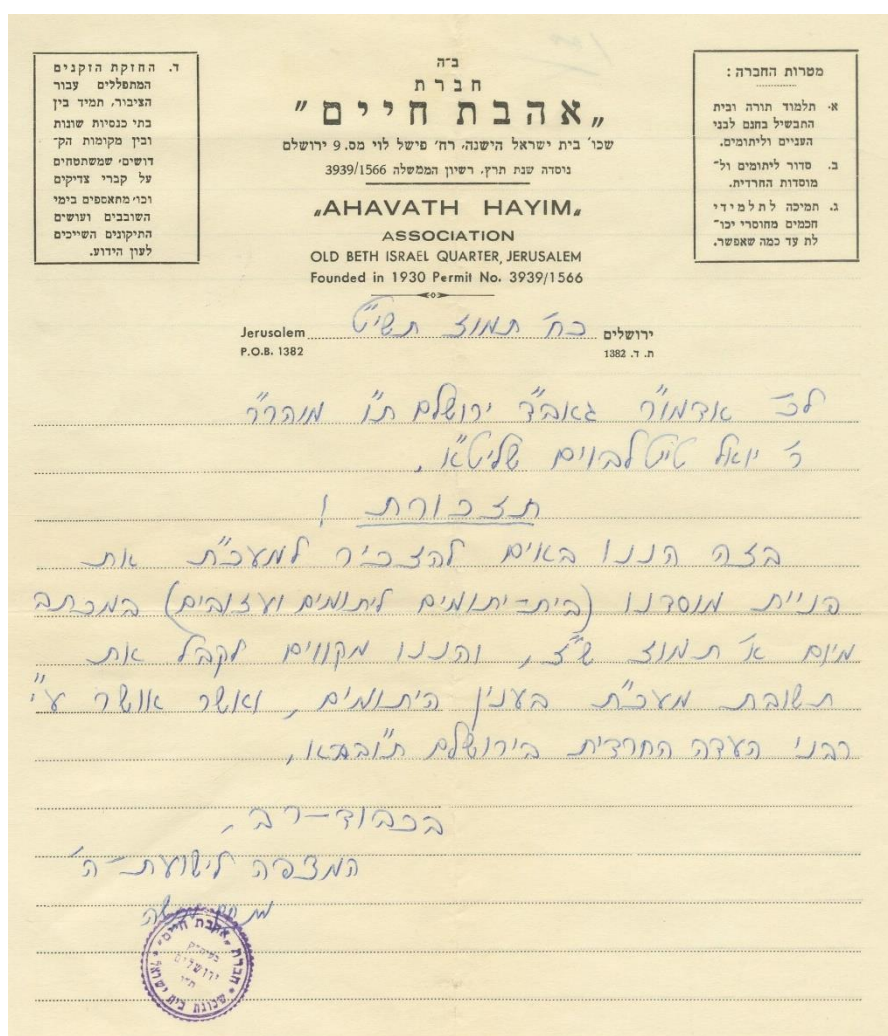 ב״ה
חברת
„אהבת חיים"
שכו׳ בית ישראל הישנה, רח׳ פישל לוי מס. 9 ירושלם
נוסדה שנת תרץ, רשיון הממשלה 3939/1566
„AHAVATH HAYIM„
ASSOCIATION
OLD BETH ISRAEL QUARTER, JERUSALEM
Founded in 1930 Permit No. 3939/1566
מטרות החברה:
א. תלמוד תורה ובית
התבשיל בחנם לבני
העניים וליתומים.
ב. סדור ליתומים ול־
מוסדות החרדית.
ג. תמיכה לתלמידי
חכמים מחוסרי יכו־
לת עד כמה שאפשר.
ד. החזקת הזקנים
המתפללים עבור
הציבור, תמיד בין
בתי כנסיות שונות
ובין מקומות הק־
דושים, שמשתטחים
על קברי צדיקים
וכו׳ מתאספים בימי
השובבים ועושים
התיקונים השייכים
לעון הידוע.
ירושלים כח׳ תמוז תשי"ט Jerusalem
ת. ד. 1382 P.O.B. 1382
לכ׳ אדמו"ר גאב"ד ירושלם ת"ו מוהר"ר
ר׳ יואל טייטלבוים שליט"א,
תזכורת!
בזה הננו באים להזכיר למעכ"ת את
פניית מוסדנו (בית-יתומים ליתומים ועזובים) במכתב
מיום א׳ תמוז ש"ז, והננו מקווים לקבל את
תשובת מעכ"ת בענין היתומים, ואשר אושר ע"י
רבני העדה החרדית בירושלם ת"ובבא,
בכבוד-רב,
המצפה לישועת-ה׳
חברת „אהבת חיים"
ירושלים
שכונת בית ישראל